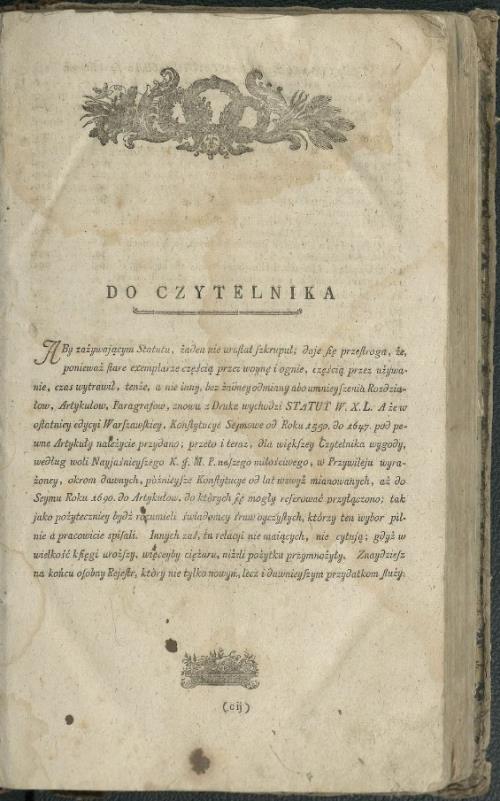 DO CZYTELNIKA
ABy zażywającym Statutu, żaden nie urastał szkrupuł; daje się przestroga, że,
ponieważ stare exemplarze częścią przez woynę i ognie, częścią przez używa-
nie, czas wytrawił, tenże, a nie inny, bez żadney odmiany abo umnieyszenia Rozdzia-
łow, Artykułow, Paragrafow, znowu z Druku wychodzi STATUT W. X. L. A że w
ostatniey edycyi Warszawskiey, Konstytucye Seymowe od Roku 1590. do 1647. pod pe-
wne Artykuły należycie przydano; przeto i teraz, dla większey Czytelnika wygody,
według woli Nayjaśnieyszego K. J. M. P. naszego miłościwego, w Przywileju wyra-
żoney, okrom dawnych, późnieysze Konstytucye od lat wzwyż mianowanych, aż do
Seymu Roku 1690. do Artykułow, do których się mogły referować przyłączono; tak
jako pożyteczniey bydź rozumieli świadomcy Praw oyczystych, którzy ten wybor pil-
nie a pracowicie spisali. Innych zaś, tu relacyi nie maiących, nie cytują; gdyż w
wielkość księgi urosszy, więceyby ciężaru, niżli pożytku przymnożyły. Znaydziesz
na końcu osobny Rejestr, który nie tylko nowym, lecz i dawnieyszym przydatkom służy.
(cij)